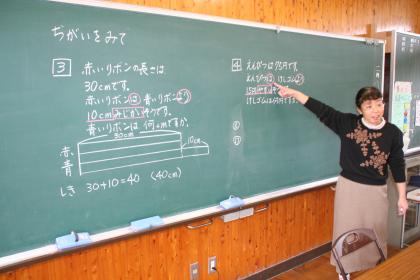 ちがいをみて
3 赤いリボンの長さは
30cmです。
赤いリボンは 青いリボンより
10cmみじかいそうです。
青いリボンは 何cmですか。
30cm
赤
青
10cm
しき 30+10=40 (40cm)
4 えんぴつは75円です。
えんぴつは けしゴムより
15円やすいそうです。
けしゴムは何円ですか。